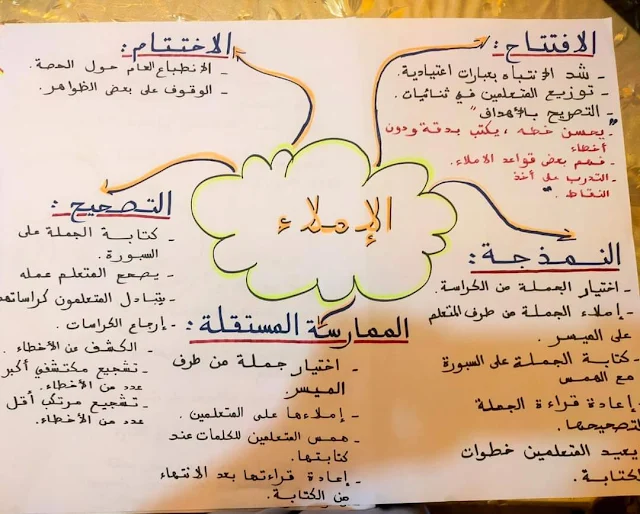 الإملاء
الافتتاح :
- شد الانتباه بعبارات اعتيادية.
- توزيع المتعلمين في ثنائيات.
- التصريح بالأهداف "
"يحسن خطه ، يكتب بدقة ودون
أخطاء
- فهم بعض قواعد الاملاء.
- التدرب على أخذ
النقاط . "
النمذجة :
- اختيار الجملة من الكراسة.
- إملاء الجملة من طرف المتعلم
على الميسر .
- كتابة الجملة على السبورة
مع الهمس
- إعادة قراءة الجملة
لتصحيحها.
يعيد المتعلمين خطوات
الكتابة .
الممارسة المستقلة :
- اختيار جملة من طرف
الميسر
- إملاءها على المتعلمين .
- همس المتعلمين للكلمات عند
كتابتها.
- إعادة قراءتها بعد الانتهاء
من الكتابة.
التصحيح :
- كتابة الجملة على
السبورة.
- يصحح المتعلم عمله
- يتبادل المتعلمون كراساتهم
- إرجاع الكراسات .
- الكشف عن الأخطاء .
- تشجيع مكتشفي أكبر
عدد من الأخطاء.
- تشجيع مرتكب أقل
عدد من الأخطاء.
الاختتام :
- الانطباع العام حول الحصة.
- الوقوف على بعض الظواهر.